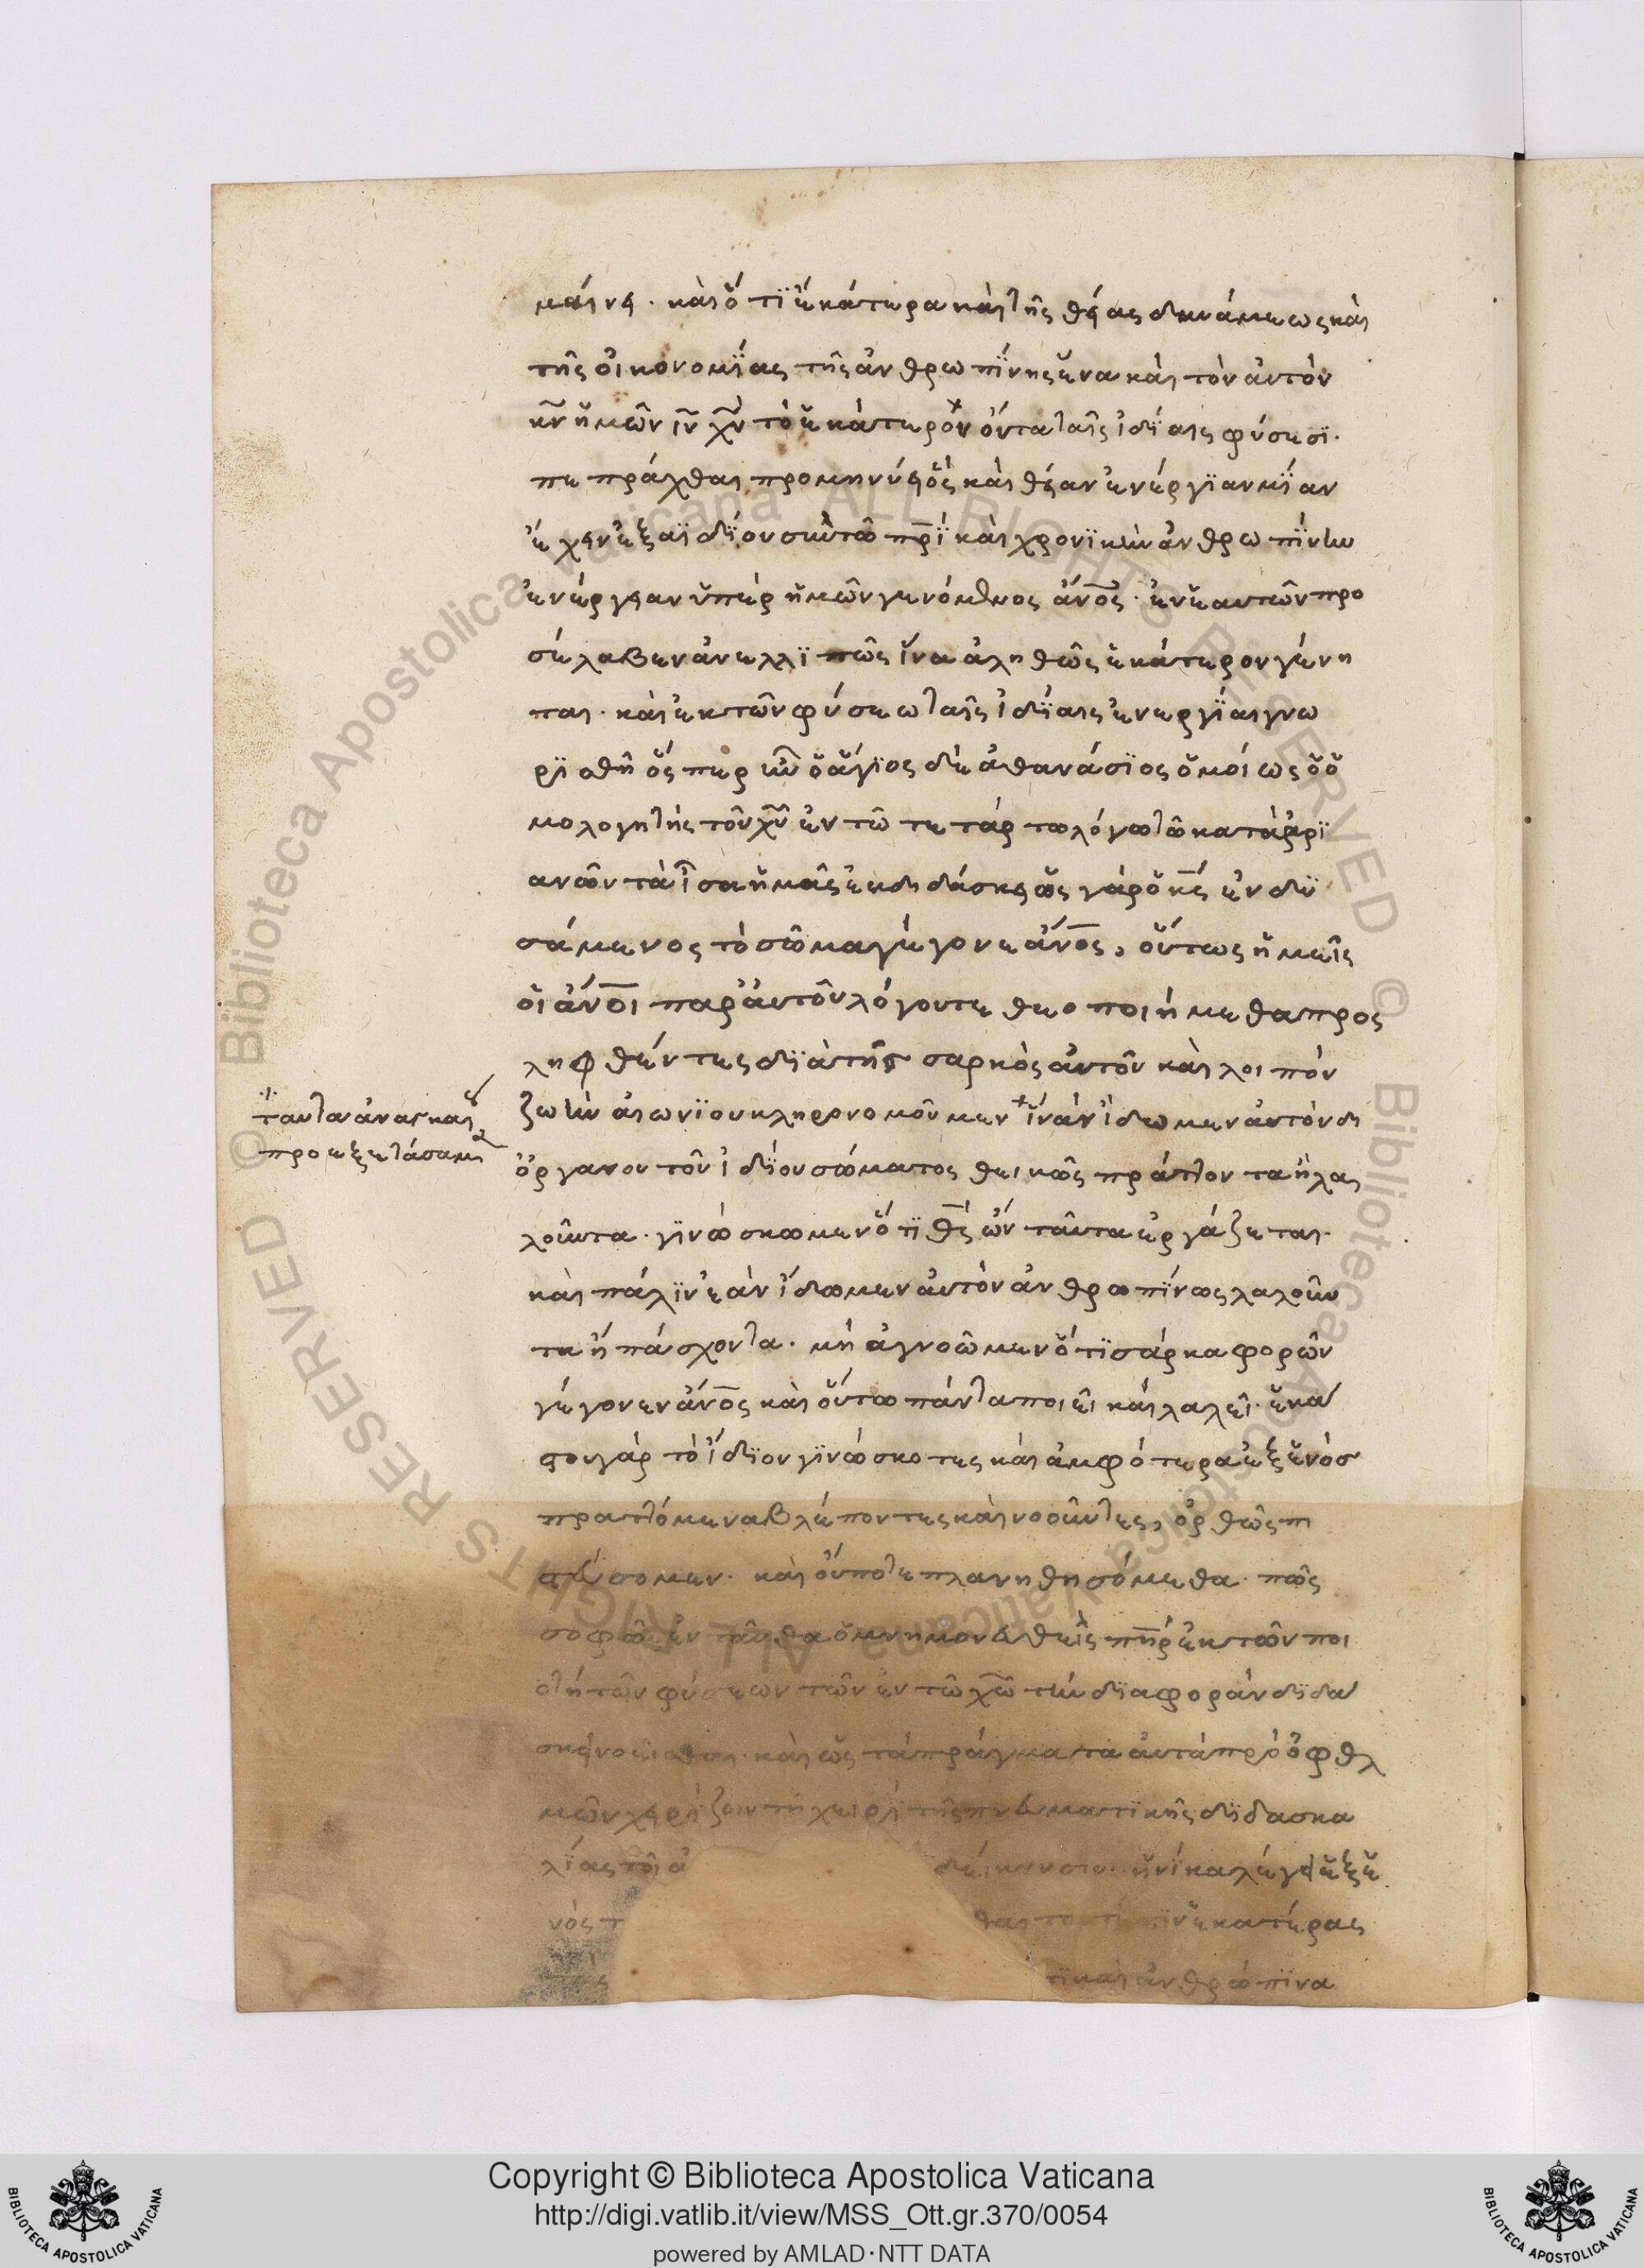 μαίνει. καὶ ὅτι ἑκάτερα καὶ τῆς θείας δυνάμεως καὶ
τῆς οἰκονομίας τῆς ἀνθρωπίνης ἕνα καὶ τὸν αὐτὸν
κν ἡμῶν ιν χν τὸ ἑκάτερον ὄντα ταῖς ἰδίαις φύσεσι.
πεπράχθαι προμηνύει ὃς καὶ θείαν ἐνέργιαν μίαν
ἔχειν ἐξ αϊδίου σὺν τῶ πρι καὶ χρονικὴν ἀνθρωπίνην
ἐνέργειαν ὑπὲρ ἡμῶν γενόμενος ἄνος. ἐν ἑαυτῶ προ
σέλαβεν ἀνελλιπῶς ἵνα ἀληθῶς ἑκάτερον γένη
ται. καὶ ἐκ τῶν φύσεω ταῖς ἰδίαις ἐνεργίαι γνω
ρισθῆ ὅσπερ ἦν ὁ ἅγιος δὲ ἀθανάσιος ὁμοίως ὁ ὁ
μολογητὴς τοῦ χυ ἐν τῶ τετάρτω λόγω τῶ κατὰ ἀρι
ανῶν τὰ ἶσα ἡμᾶς ἐκδιδάσκει ὡς γὰρ ὁ κς ἐνδυ
σάμενος τὸ σῶμα γέγονε ἄνος, οὕτως ἡμεῖς
οἱ ἄνοι παρ' αὐτοῦ λόγου τε θεοποιήμεθα προς
ληφθέντες διὰ τῆς σαρκὸς αὐτοῦ καὶ λοιπὸν
ζωὴν αἰωνιου κληρονομοῦμεν ἵν' ἀν ἴδωμεν αὐτὸν δι
ταῦτα ἀναγκαί
προεξετάσαμε
ὀργανου τοῦ ἰδίου σώματος θεικῶς πράττοντα ἢ λα
λοῦντα. γινώσκωμεν ὅτι θς ὢν ταῦτα ἐργάζεται.
καὶ πάλιν ἐὰν ἴδωμεν αὐτὸν ἀνθρωπίνως λαλοῦν
τα ἢ πάσχοντα. μὴ ἀγνοῶμεν ὅτι σάρκα φορῶν
γέγονεν ἄνος καὶ οὕτω πάντα ποιεῖ καὶ λαλεῖ. ἑκά
στου γὰρ τὸ ἴδιον γινώσκοτες καὶ ἀμφότερα ἐξ ἑνὸσ
πραττόμενα βλέποντες καὶ νοοῦντες, ὀρθῶς πι
στεύσομεν. καὶ οὔποτε πλανηθησόμεθα. πῶς
σοφῶς ἐνταῦθα ὁ μνημονευθεὶς πηρ ἐκ τῶν ποι
τῶν φύσεων τῶν ἐν τῶ χω τὴν διαφορὰν διδά
σκει νοεῖσθαι. καὶ ὡς τὰ πράγματα αὐτὰ πρὸ ὀφθλ
μῶν χειρίζων τῆ χειρὶ τῆς πνευματικῆς διδασκα
λίας τοῖ δείκνυσιν. ἡνίκα λέγει ἐξ ἑ
νὸς τ ἑκατέρας
τι καὶ ἀνθρώπινα
Copyright © Biblioteca Apostolica Vaticana
http://digi.vatlib.it/view/MSS_Ott.gr.370/0054
powered by AMLAD·NTT DATA
BIBLIOTECA APOSTOLICA VATICANA
BIBLIOTECA APOSTOLICA VATICANA
© Biblioteca Apostolica Vaticana ALL RIGHTS RESERVED © Biblioteca Apostolica Vaticana ALL RIGHTS RESERVED